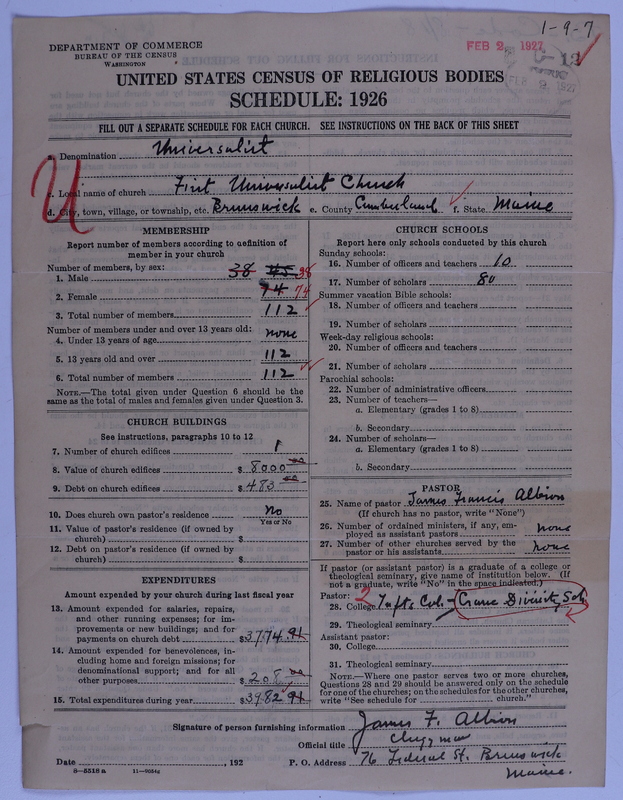 1-9-7
DEPARTMENT OF COMMERCE
BUREAU OF THE CENSUS
WASHINGTON
FEB 2 1927
FEB 9 1927
UNITED STATES CENSUS OF RELIGIOUS BODIES
SCHEDULE: 1926
FILL OUT A SEPARATE SCHEDULE FOR EACH CHURCH. SEE INSTRUCTIONS ON THE BACK OF THIS SHEET
U
a. Denomination Universalist
c. Local name of church First Universalist Church
d. City, town, village, or township, etc. Brunswick e. County Cumberland f. State Maine
MEMBERSHIP
Report number of members according to definition of
member in your church
Number of members, by sex:
1. Male 38 38
2. Female 74 74
3. Total number of members 112
Number of members under and over 13 years old:
4. Under 13 years of age none
5. 13 years old and over 112
6. Total number of members 112
NOTE.—The total given under Question 6 should be
same as the total of males and females given under Question 3.
CHURCH BUILDINGS
See instructions, paragraphs 10 to 12
7. Number of church edifices 1
8. Value of church edifices $ 8000 00
9. Debt on church edifices $ 483 00
10. Does church own pastor's residence No
Yes or No
11. Value of pastor's residence (if owned by
church) $
12. Debt on pastor's residence (if owned by
church) $
EXPENDITURES
Amount expended by your church during last fiscal year
13. Amount expended for salaries, repairs,
and other running expenses; for im-
provements or new buildings; and for
payments on church debt $3774.91
14. Amount expended for benevolences, in-
cluding home and foreign missions; for
denominational support; and for all
other purposes $ 208 00
15. Total expenditures during year $3982 91
CHURCH SCHOOLS
Report here only schools conducted by this church
Sunday schools:
16. Number of officers and teachers 10
17. Number of scholars 80
Summer vacation Bible schools:
18. Number of officers and teachers
19. Number of scholars
Week-day religious schools:
20. Number of officers and teachers
21. Number of scholars
Parochial schools:
22. Number of administrative officers
23. Number of teachers—
a. Elementary (grades 1 to 8)
b. Secondary
24. Number of scholars—
a. Elementary (grades 1 to 8)
b. Secondary
PASTOR
25. Name of pastor James Francis Albion
(If church has no pastor, write "None")
26. Number of ordained ministers, if any, em-
ployed as assistant pastors none
27. Number of other churches served by the
pastor or his assistants none
If pastor (or assistant pastor) is a graduate of a college or
theological seminary, give name of institution below. (If
not a graduate, write "No" in the space indicated.)
Pastor: 2
28. College Tufts Col - Crane Divinity Sch
29. Theological seminary
Assistant pastor:
30. College
31. Theological seminary
NOTE.—Where one pastor serves two or more churches,
Questions 28 and 29 should be answered only on the schedule
for one of the churches; on the schedules for the other churches,
write "See schedule for church."
Signature of person furnishing information James F. Albion
Official title Clergyman
Date , 192 P. O. Address 76 Federal St. Brunswick
Maine.
8—5518 a 11—9034g